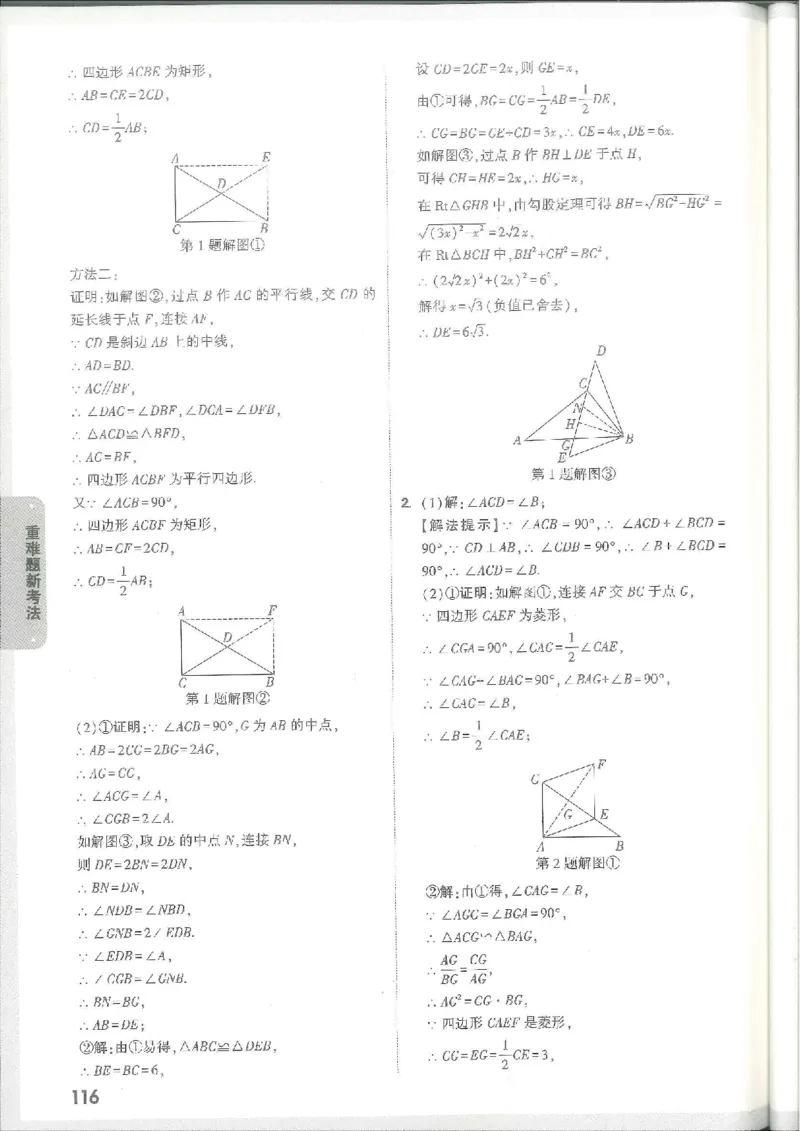 ∴ 四边形 ACBE 为矩形,
∴ AB=CE=2CD,
∴ CD=1/2AB;
A E
D
C B
第1题解图①
方法二:
证明:如解图②,过点 B 作 AC 的平行线,交 CD 的
延长线于点 F,连接 AF,
∵ CD 是斜边 AB 上的中线,
∴ AD=BD.
∵ AC∥BF,
∴ ∠DAC=∠DBF,∠DCA=∠DFB,
∴ △ACD≌△BFD,
∴ AC=BF,
∴ 四边形 ACBF 为平行四边形.
又∵ ∠ACB=90°,
∴ 四边形 ACBF 为矩形,
∴ AB=CF=2CD,
∴ CD=1/2AB;
A F
D
C B
第1题解图②
(2)①证明:∵ ∠ACB=90°,G 为 AB 的中点,
∴ AB=2CG=2BG=2AG,
∴ AG=CG,
∴ ∠ACG=∠A,
∴ ∠CGB=2∠A.
如解图③,取 DE 的中点 N,连接 BN,
则 DE=2BN=2DN,
∴ BN=DN,
∴ ∠NDB=∠NBD,
∴ ∠GNB=2∠EDB.
∵ ∠EDB=∠A,
∴ ∠CGB=∠GNB.
∴ BN=BG,
∴ AB=DE;
②解:由①易得,△ABC≌△DEB,
∴ BE=BC=6,
116
重难题新考法
设 CD=2GE=2x,则 GE=x,
由①可得,BG=CG=1/2AB=1/2DE,
∴ CG=BG=GE+CD=3x,∴ CE=4x,DE=6x.
如解图③,过点 B 作 BH⊥DE 于点 H,
可得 CH=HE=2x,∴ HG=x,
在 Rt△GHB 中,由勾股定理可得 BH=√(BG²-HG²)=
√((3x)²-x²)=2√2x,
在 Rt△BCH 中,BH²+CH²=BC²,
∴ (2√2x)²+(2x)²=6²,
解得 x=√3(负值已舍去),
∴ DE=6√3.
D
C
N
H
A G B
E
第1题解图③
2. (1)解:∠ACD=∠B;
【解法提示】∵ ∠ACB=90°,∴ ∠ACD+∠BCD=
90°,∵ CD⊥AB,∴ ∠CDB=90°,∴ ∠B+∠BCD=
90°,∴ ∠ACD=∠B.
(2)①证明:如解图①,连接 AF 交 BC 于点 G,
∵ 四边形 CAEF 为菱形,
∴ ∠CGA=90°,∠GAC=1/2∠CAE,
∵ ∠CAG+∠BAG=90°,∠BAG+∠B=90°,
∴ ∠CAG=∠B,
∴ ∠B=1/2∠CAE;
F
C
G E
A B
第2题解图①
②解:由①得,∠CAG=∠B,
∵ ∠AGC=∠BGA=90°,
∴ △ACG∽△BAG,
∴ AG/BG=CG/AG,
∴ AG²=CG·BG,
∵ 四边形 CAEF 是菱形,
∴ CG=EG=1/2CE=3,